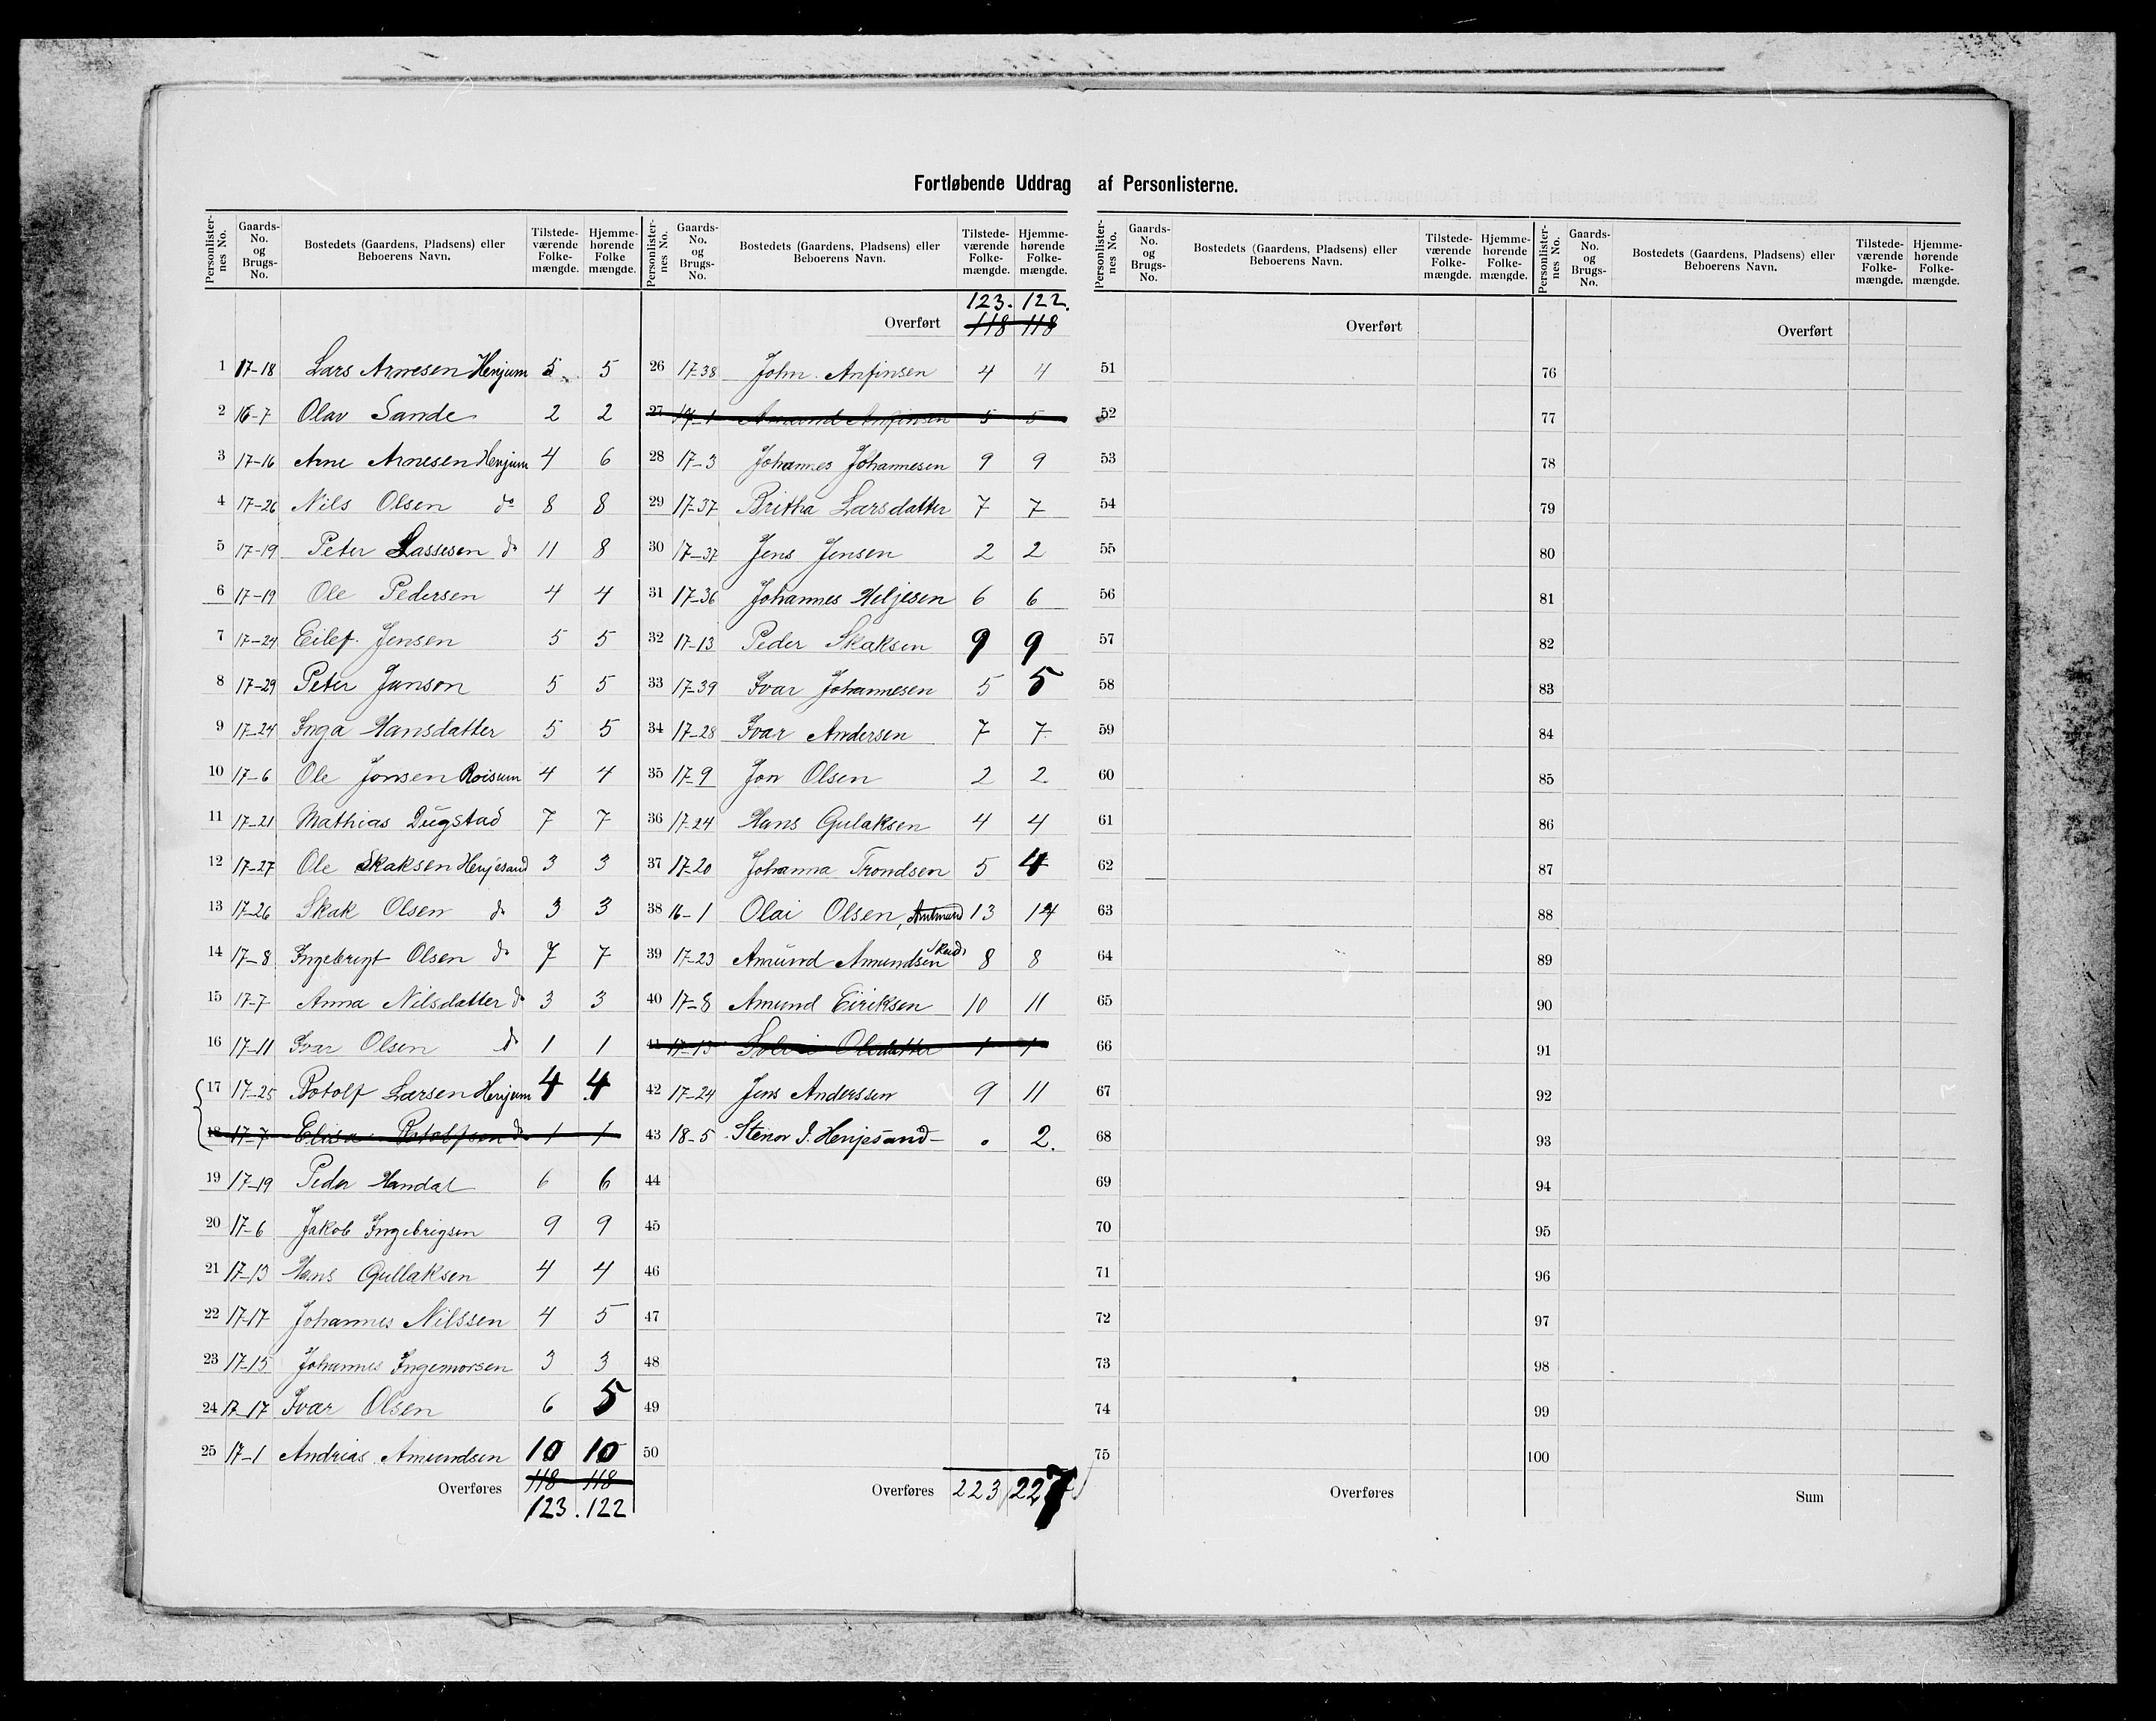 Fortløbende Uddrag af Personlisterne.
Personlisternes No. Gaards-No. og Brugs-No. Bostedets (Gaardens, Pladsens) eller Beboerens Navn. Tilstedeværende Folkemængde. Hjemmehørende Folke mængde.
1 17-18 Lars Arnesen Henjum 5 5
2 16-7 Olav Sande 2 2
3 17-16 Arne Arnesen Henjum 4 6
4 17-26 Nils Olsen do 8 8
5 17-19 Peter Lassesen do 11 8
6 17-19 Ole Pedersen 4 4
7 17-24 Eilef Jensen 5 5
8 17-29 Peter Janson 5 5
9 17-24 Inga Hansdatter 5 5
10 17-6 Ole Jonsen Roisum 4 4
11 17-21 Mathias Dugstad 7 7
12 17-27 Ole Skaksen Henjesand 3 3
13 17-26 Skak Olsen do 3 3
14 17-8 Ingebrigt Olsen do 7 7
15 17-7 Anna Nilsdatter do 3 3
16 17-11 Ivar Olsen do 1 1
17 17-25 Botolf Larsen Henjum 4 4
18 17-7 Elisa Botolfsen do 1 1
19 17-19 Peder Handal 6 6
20 17-6 Jakob Ingebrigsen 9 9
21 17-13 Hans Gullaksen 4 4
22 17-17 Johannes Nilssen 4 5
23 17-15 Johannes Ingemorsen 3 3
24 17-17 Ivar Olsen 6 5
25 17-1 Andrias Amundsen 10 10
118 118
Overføres
123. 122
Personlisternes No. Gaards-No. og Brugs-No. Bostedets (Gaardens, Pladsens) eller Beboerens Navn. Tilstedeværende Folkemængde. Hjemmehørende Folkemængde.
123. 122.
Overført 118 118
26 17-38 John Anfinsen 4 4
27 17-1 Amund Anfinsen 5 5
28 17-3 Johannes Johannesen 9 9
29 17-37 Britha Larsdatter 7 7
30 17-37 Jens Jensen 2 2
31 17-36 Johannes Heljesen 6 6
32 17-13 Peder Skaksen 9 9
33 17-39 Ivar Johannesen 5 5
34 17-28 Ivar Andersen 7 7
35 17-9 Jon Olsen 2 2
36 17-24 Hans Gulaksen 4 4
37 17-20 Johanna Trondsen 5 4
38 16-1 Olai Olsen, 13 14
39 17-23 Amund Amundsen 8 8
40 17-8 Amund Eiriksen 10 11
41 17-13 Olsdatter 1 1
42 17-24 Jens Anderssen 9 11
43 18-5 Stenor J. Henjesand - 2.
44
45
46
47
48
49
50
Overføres 223 227
Personlisternes No. Gaards-No. og Brugs-No. Bostedets (Gaardens, Pladsens) eller Beboerens Navn. Tilstedeværende Folkemængde. Hjemmehørende Folkemængde.
Overført
51
52
53
54
55
56
57
58
59
60
61
62
63
64
65
66
67
68
69
70
71
72
73
74
75
Overføres
Personlisternes No. Gaards-No. og Brugs-No. Bostedets (Gaardens, Pladsens) eller Beboerens Navn. Tilstedeværende Folkemængde. Hjemmehørende Folkemængde.
Overført
76
77
78
79
80
81
82
83
84
85
86
87
88
89
90
91
92
93
94
95
96
97
98
99
100
Sum